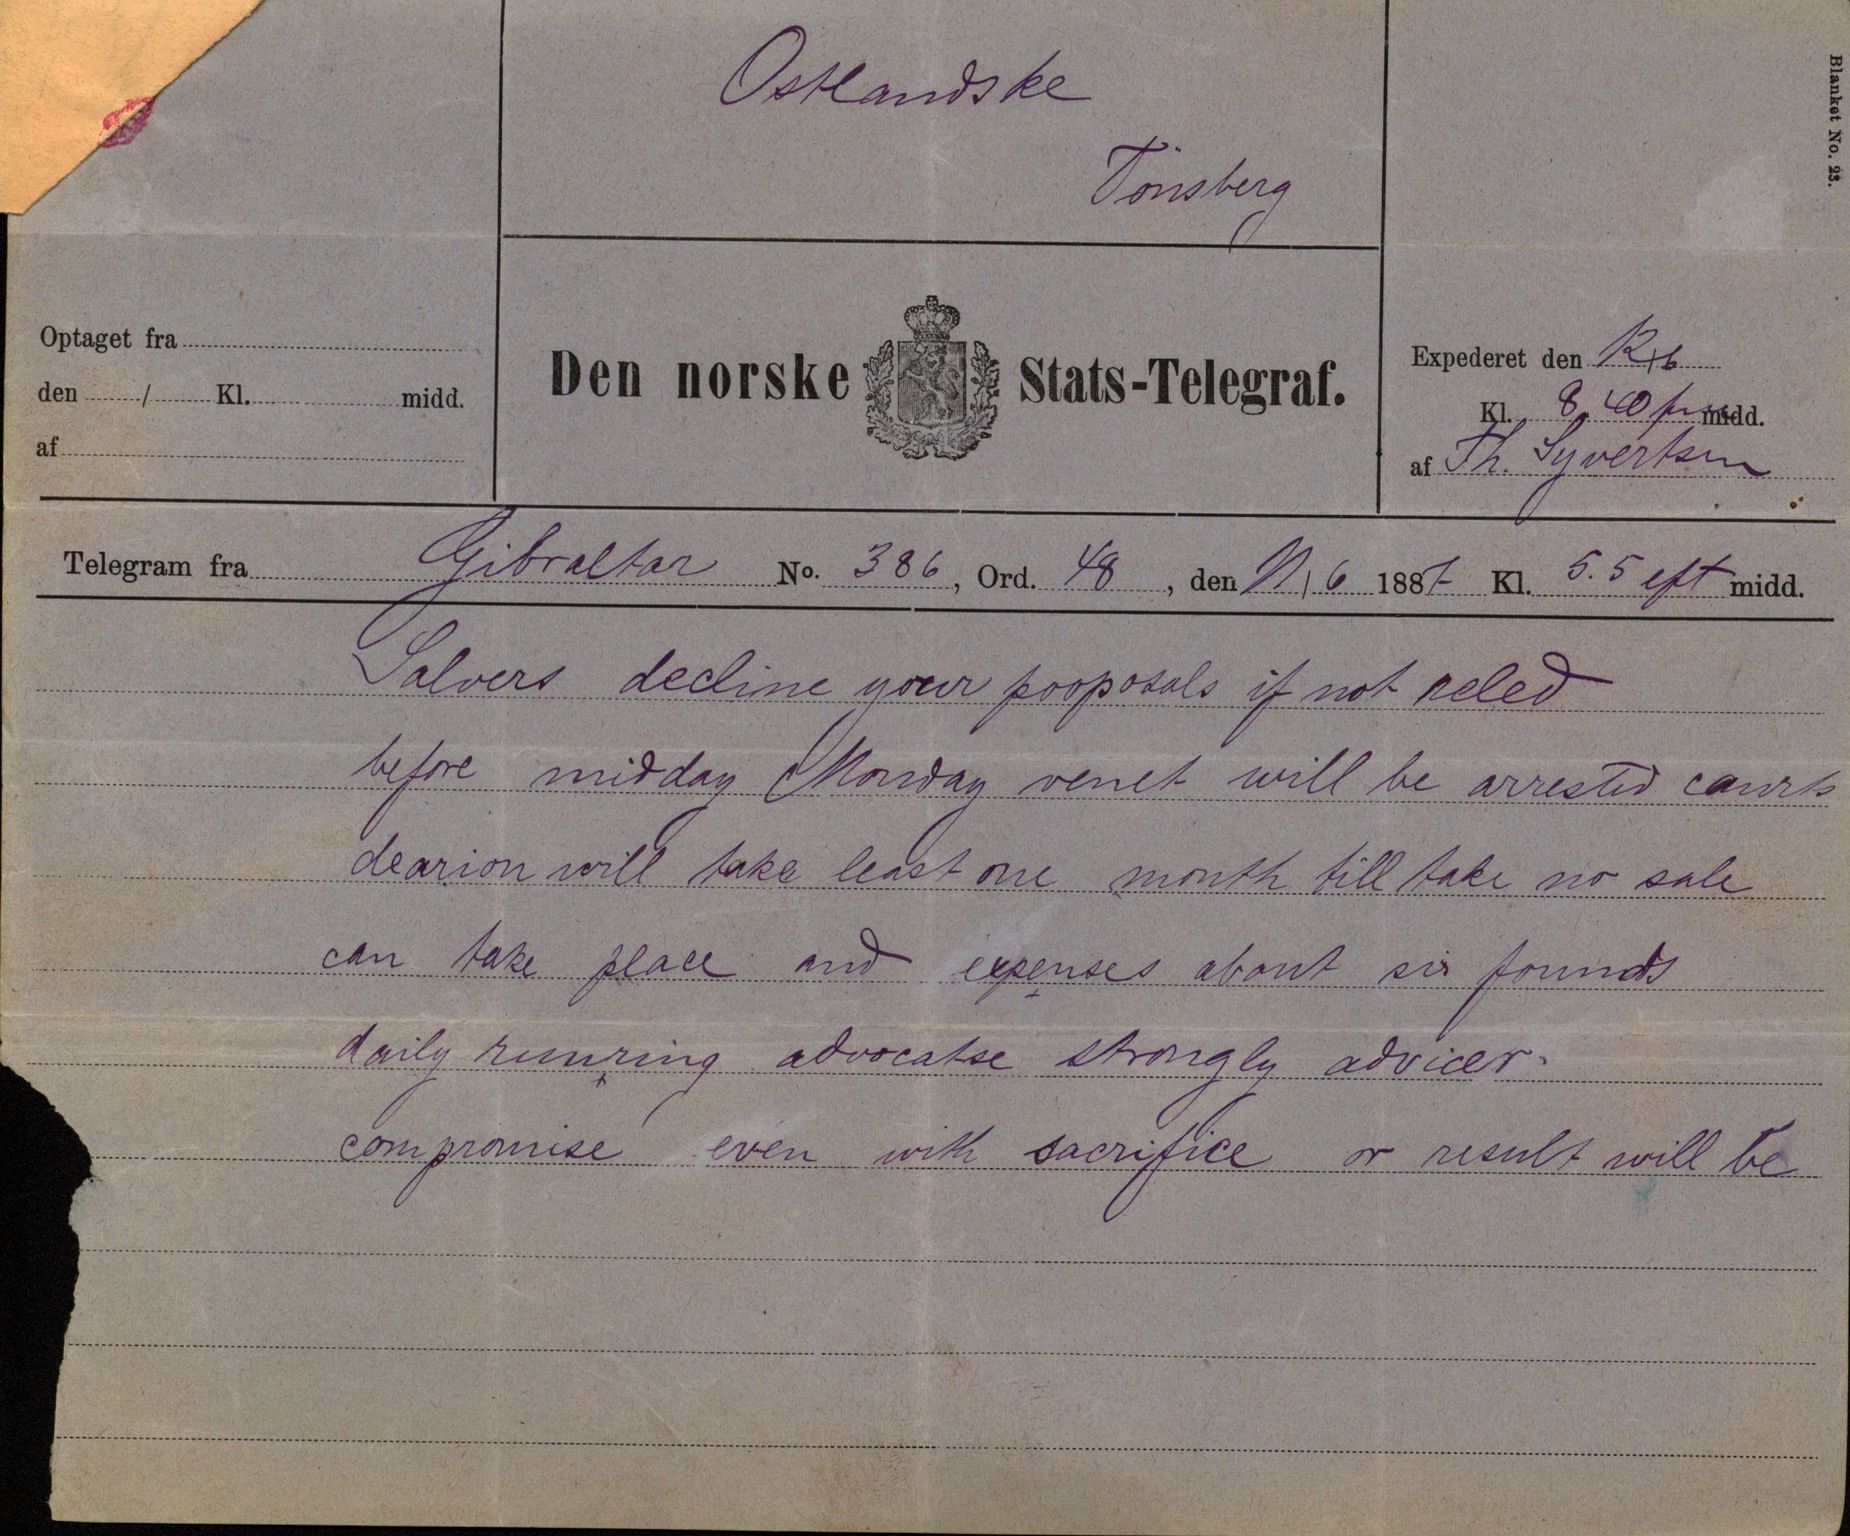 Blanket No. 23.
Ostlandske
Tönsberg
Optaget fra
den / Kl. midd.
af
Den norske Stats-Telegraf.
Expederet den 12/6
Kl. 8,40 fm midd.
af Th. Syvertsen
Telegram fra Gibraltar No. 386, Ord. 48, den 11/6 1887 Kl. 5.5 eft midd.
Salvers decline your pooposals if not
before midday Monday venet will be arrested courts
will take least one month till take no sale
can take place and expenses about six founds
daily running advocatse strongly advicer
compromise even with sacrifice or result will be